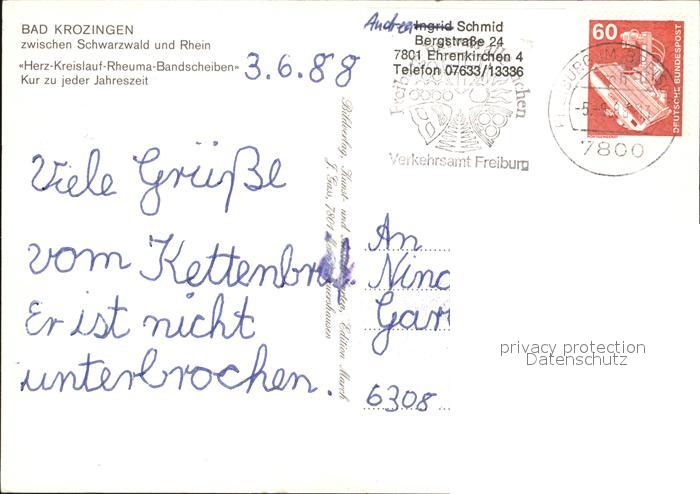 BAD KROZINGEN
zwischen Schwarzwald und Rhein
«Herz-Kreislauf-Rheuma-Bandscheiben»
Kur zu jeder Jahreszeit
3.6.88
Andrea Ingrid Schmid
Bergstraße 24
7801 Ehrenkirchen 4
Telefon 07633/13336
Verkehrsamt Freiburg
7800
60
DEUTSCHE BUNDESPOST
Viele Grüße
vom Kettenbr
Er ist nicht
unterbrochen.
Bildverlag, Kunst- und Edition March
J. Gass, 7801
An
Nin
Gar
6308
privacy protection
Datenschutz